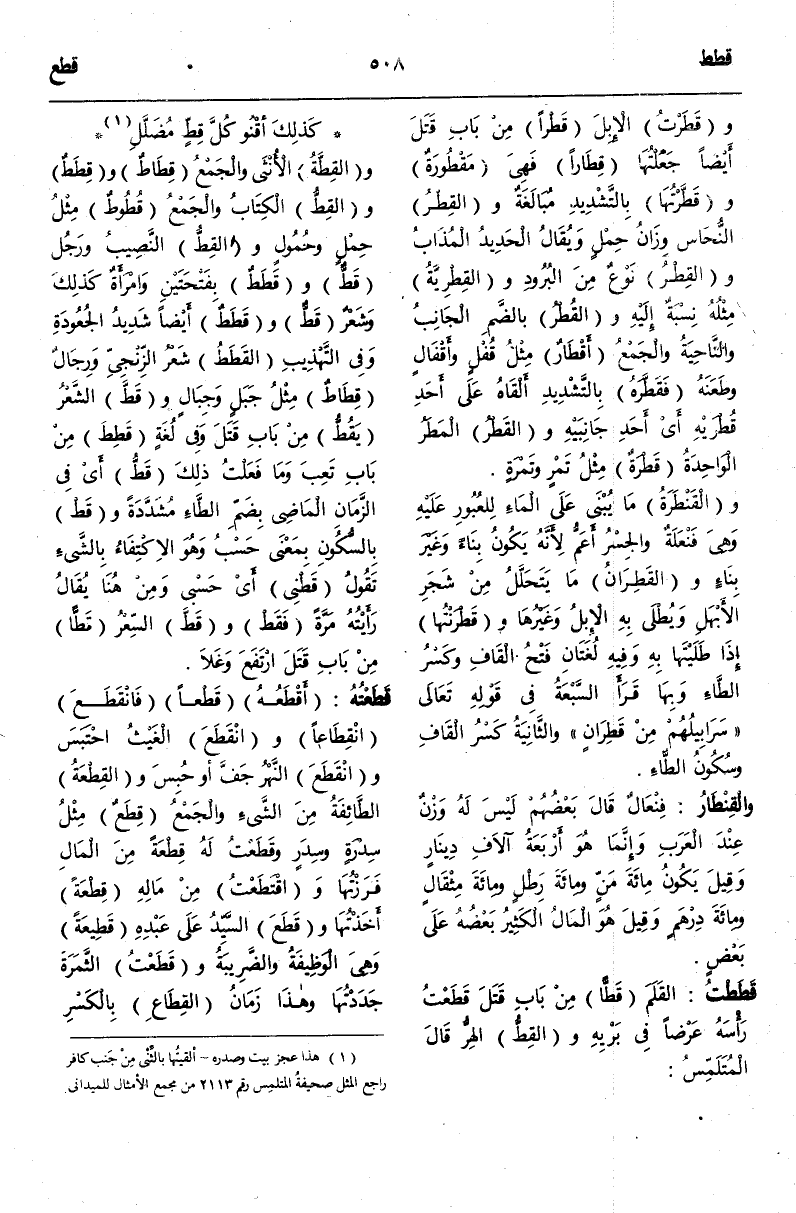 قطط
٥٠٨
قطع
و ( قَطَرْتُ ) الْإِبِلَ ( قَطْراً ) مِنْ بَابِ قَتَلَ
أَيْضاً جَعَلْتُهَا ( قِطَاراً ) فَهِىَ ( مَقْطُورَةٌ )
و ( قَطَّرْتُهَا ) بِالتَّشْدِيدِ مُبَالَغَةٌ و ( القِطْرُ )
النُّحَاس وِزَان حِمْلٍ وَيُقَالُ الْحَدِيدُ الْمُذَابُ
و ( القِطْرُ ) نَوْعٌ مِنَ الْبُرُودِ و ( القِطْرِيَّةُ )
مِثْلُهُ نِسْبَةٌ إِلَيْهِ و ( القُطْرُ ) بِالضَّمِ الْجَانِبُ
والنَّاحِيَةُ والْجَمْعُ ( أَقْطَارٌ ) مِثْلُ قُفْلٍ وأَقْفَالٍ
وطَعَنَهُ ( فَقَطَّرَهُ ) بِالتَّشْدِيدِ أَلْقَاهُ عَلَى أَحَدِ
قُطْرَيْهِ أَىْ أَحَدِ جَانِبَيْهِ و ( القَطْرُ ) الْمَطَرُ
الْوَاحِدَةُ ( قَطْرَةٌ ) مِثْلُ تَمْرٍ وتَمْرَةٍ .
و ( الْقَنْطَرَةُ ) مَا يُبْنَى عَلَى الْمَاءِ لِلعُبُورِ عَلَيْهِ
وَهِىَ فَنْعَلَةٌ والجِسْرُ أَعَمُّ لِأَنَّهُ يَكُونُ بِنَاءً وَغَيْرَ
بِنَاءٍ و ( القَطِرَانُ ) مَا يَتَحَلَّلُ مِنْ شَجَرِ
الأَبْهَلِ وَيُطْلَى بِهِ الْإِبِلُ وَغَيْرُهَا و ( قَطَرْتُهَا )
إِذَا طَلَيْتَهَا بِهِ وَفِيهِ لُغَتَانِ فَتْحُ الْقَافِ وكَسْرُ
الطَّاءِ وَبِهَا قَرَأَ السَّبْعَةُ فِى قَوْلِهِ تَعَالَى
« سَرَابِيلُهُمْ مِنْ قَطِرَانٍ » والثَّانِيَةُ كَسْرُ الْقَافِ
وسُكُونُ الطَّاءِ .
والْقِنْطَارُ : فِنْعَالٌ قَالَ بَعْضُهُمْ لَيْسَ لَهُ وَزْنٌ
عِنْدَ الْعَرَبِ وَإِنَّمَا هُوَ أَرْبَعَةُ آلَافِ دِينَارٍ
وَقِيلَ يَكُونُ مِائَةَ مَنٍّ ومِائَةَ رَطْلٍ ومِائَةَ مِثْقَالٍ
ومِائَةَ دِرْهَمٍ وَقِيلَ هُوَ الْمَالُ الْكَثِيرُ بَعْضُهُ عَلَى
بَعْضٍ .
قَطَطْتُ : القَلَمَ ( قَطًّا ) مِنْ بَابِ قَتَلَ قَطَعْتُ
رَأْسَهُ عَرْضاً فِى بَرْيِهِ و ( القِطُّ ) الهِرُّ قَالَ
الْمُتَلَمِّسُ :
* كَذلِكَ أَقْنُو كُلَّ قِطٍّ مُضَلَّلِ(١) *
و( القِطَّةُ ) الْأُنْثَى والْجَمْعُ ( قِطَاطٌ ) و( قِطَطٌ )
و ( القِطُّ ) الْكِتَابُ والْجَمْعُ ( قُطُوطٌ ) مِثْلُ
حِمْلٍ وحُمُولٍ و ( القِطُّ ) النَّصِيبُ ورَجُل
( قَطٌّ ) و ( قَطَطٌ ) بِفَتْحَتَيْنِ وَامْرَأَةٌ كَذلِكَ
وَشَعْرٌ ( قَطٌّ ) و( قَطَطٌ ) أَيْضاً شَدِيدُ الْجُعُودَةِ
وَفِى التَّهْذِيبِ ( القَطَطُ ) شَعْرُ الزِّنْجِىِّ وَرِجَالٌ
( قِطَاطٌ ) مِثْلُ جَبَلٍ وَجِبَالٍ و ( قَطَّ ) الشَّعْرُ
( يَقُطُّ ) مِنْ بَابِ قَتَلَ وَفِى لُغَةٍ ( قَطِطَ ) مِنْ
بَابِ تَعِبَ وَمَا فَعَلْتُ ذلِكَ ( قَطُّ ) أَىْ فِى
الزَّمَانِ الْمَاضِى بِضَمِّ الطَّاءِ مُشَدَّدَةً و ( قَطْ )
بِالسُّكُونِ بِمَعْنَى حَسْبُ وَهُوَ الاِكْتِفَاءُ بِالشَّىءِ
تَقُولُ ( قَطْنِى ) أَىْ حَسْبِى وَمِنْ هُنَا يُقَالُ
رَأَيْتُهُ مَرَّةً ( فَقَطْ ) و ( قَطَّ ) السِّعْرُ ( قَطًّا )
مِنْ بَابِ قَتَلَ ارْتَفَعَ وَغَلَا .
قَطَعْتُهُ : ( أَقْطَعُـهُ ) ( قَطْعـاً ) ( فَانْقَطَـــعَ )
( انْقِطَاعاً ) و ( انْقَطَعَ ) الْغَيْثُ احْتَبَسَ
و ( انْقَطَعَ ) النَّهْرُ جَفَّ أَو حُبِسَ و ( القِطْعَةُ )
الطَّائِفَةُ مِنَ الشَّىءِ والْجَمْعُ ( قِطَعٌ ) مِثْلُ
سِدْرَةٍ وسِدَرٍ وقَطَعْتُ لَهُ قِطْعَةً مِنَ الْمَالِ
فَرَزْتُهَا وَ ( اقْتَطَعْتُ ) مِنْ مَالِهِ ( قِطْعَةً )
أَخَذْتُهَا و ( قَطَعَ ) السَّيِّدُ عَلَى عَبْدِهِ ( قَطِيعَةً )
وَهِىَ الْوَظِيفَةُ والضَّرِيبَةُ و ( قَطَعْتُ ) الثَّمَرَةَ
جَدَدْتُهَا وهٰذَا زَمَانُ ( القِطَاعِ ) بِالْكَسْرِ
( ١ ) هذا عجز بيت وصدره – ألقيتُها بالثِّنْى مِنْ جَنب كافر
راجع المثل صحيفةُ المتلمِس رقم ٢١١٣ من مجمع الأمثال للميدانى